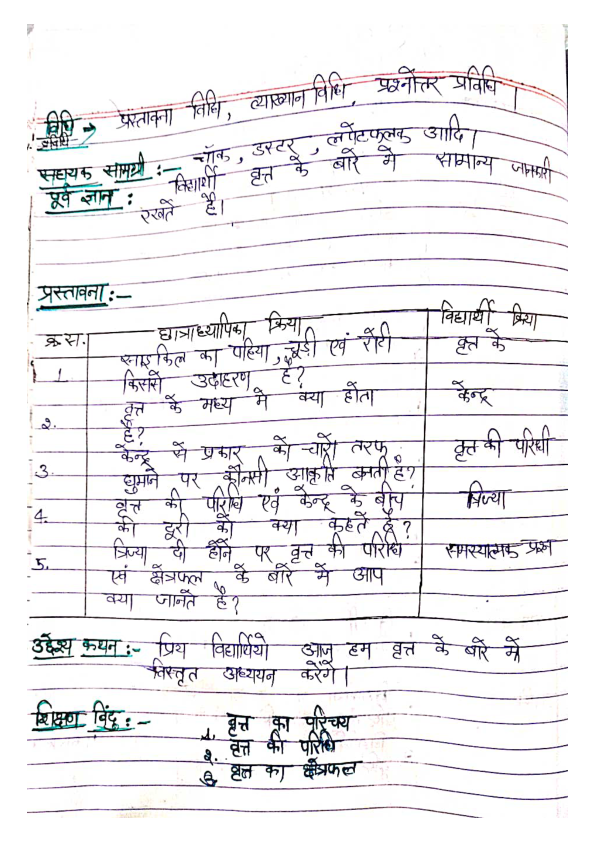 विधि → प्रस्तावना विधि, व्याख्यान विधि, प्रश्नोत्तर प्रविधि।
प्रविधि
सहायक सामग्री :- चॉक, डस्टर, लपेटफलक आदि।
पूर्व ज्ञान : विद्यार्थी वृत्त के बारे में सामान्य जानकारी
रखते है।
प्रस्तावना :-
क्र.स. छात्राध्यापिका क्रिया विद्यार्थी क्रिया
1. साइकिल का पहिया, चूड़ी एवं रोटी वृत्त के
किसके उदाहरण है?
2. वृत्त के मध्य में क्या होता केन्द्र
है?
3. केन्द्र से प्रकार को चारों तरफ वृत्त की परिधी
घुमाने पर कौनसी आकृति बनती है?
4. वृत्त की परिधि एवं केन्द्र के बीच त्रिज्या
की दूरी को क्या कहते है?
5. त्रिज्या दी होने पर वृत्त की परिधि समस्यात्मक प्रश्न
एवं क्षेत्रफल के बारे में आप
क्या जानते है?
उद्देश्य कथन :- प्रिय विद्यार्थियो आज हम वृत्त के बारे में
विस्तृत अध्ययन करेंगे।
शिक्षण बिंदु :-
1. वृत्त का परिचय
2. वृत्त की परिधि
3. वृत्त का क्षेत्रफल